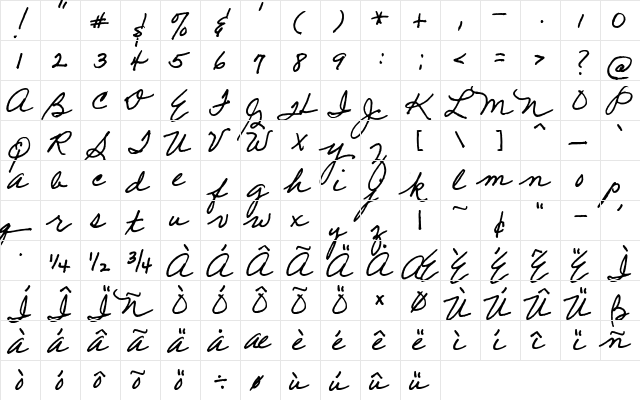 ! " # $ % & ' ( ) * + , - . / 0
1 2 3 4 5 6 7 8 9 : ; < = > ? @
A B C D E F G H I J K L M N O P
Q R S T U V W X Y Z [ \ ] ^ _ `
a b c d e f g h i j k l m n o p
q r s t u v w x y z | ~ ¢ " - ´
· 1/4 1/2 3/4 À Á Â Ã Ä Å Æ È É Ê Ë Ì
Í Î Ï Ñ Ò Ó Ô Õ Ö × Ø Ù Ú Û Ü ß
à á â ã ä å æ è é ê ë ì í î ï ñ
ò ó ô õ ö ÷ ø ù ú û ü